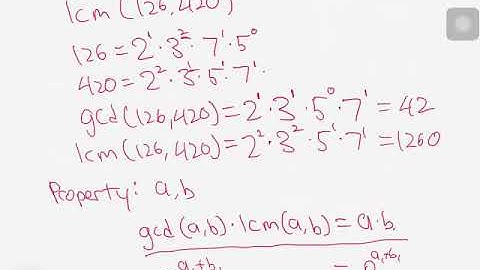 lcm(126,420)
126 = 2¹·3²·7¹·5⁰
420 = 2²·3¹·5¹·7¹.
gcd(126,420) = 2¹·3¹·5⁰·7¹ = 42
lcm(126,420) = 2²·3²·5¹·7¹ = 1260
Property: a,b
gcd(a,b)·lcm(a,b) = a·b.